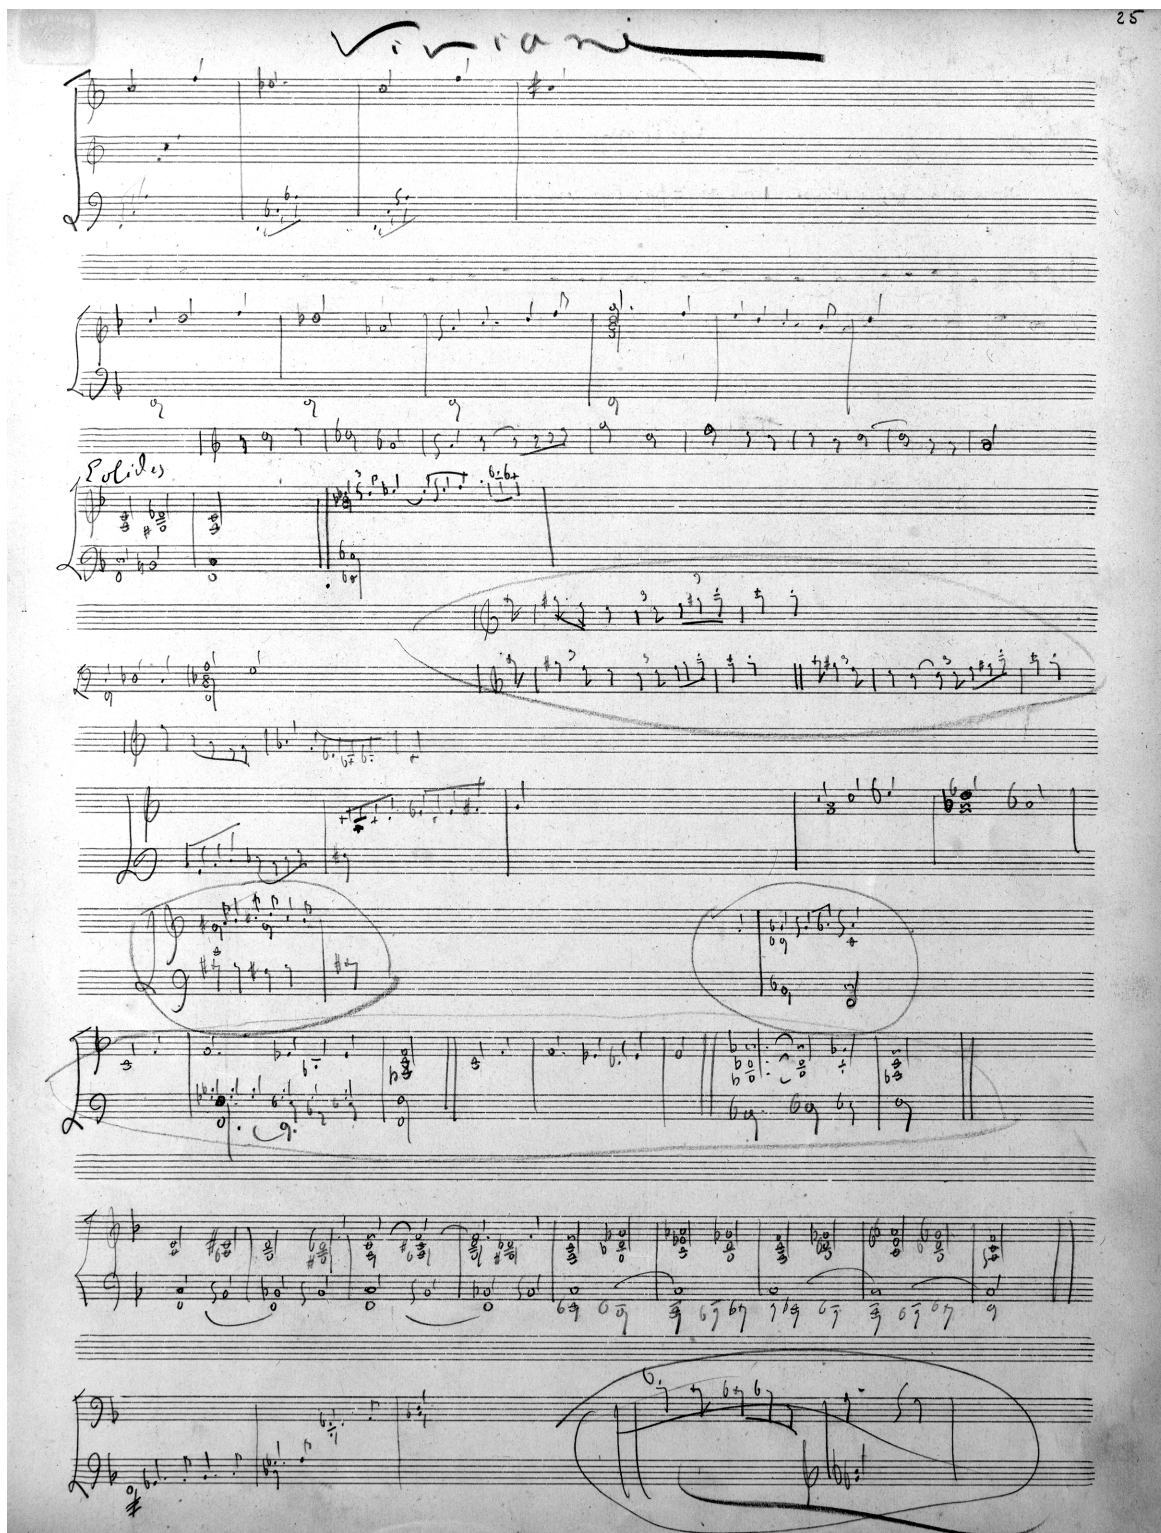 25
Viviane
Eolides